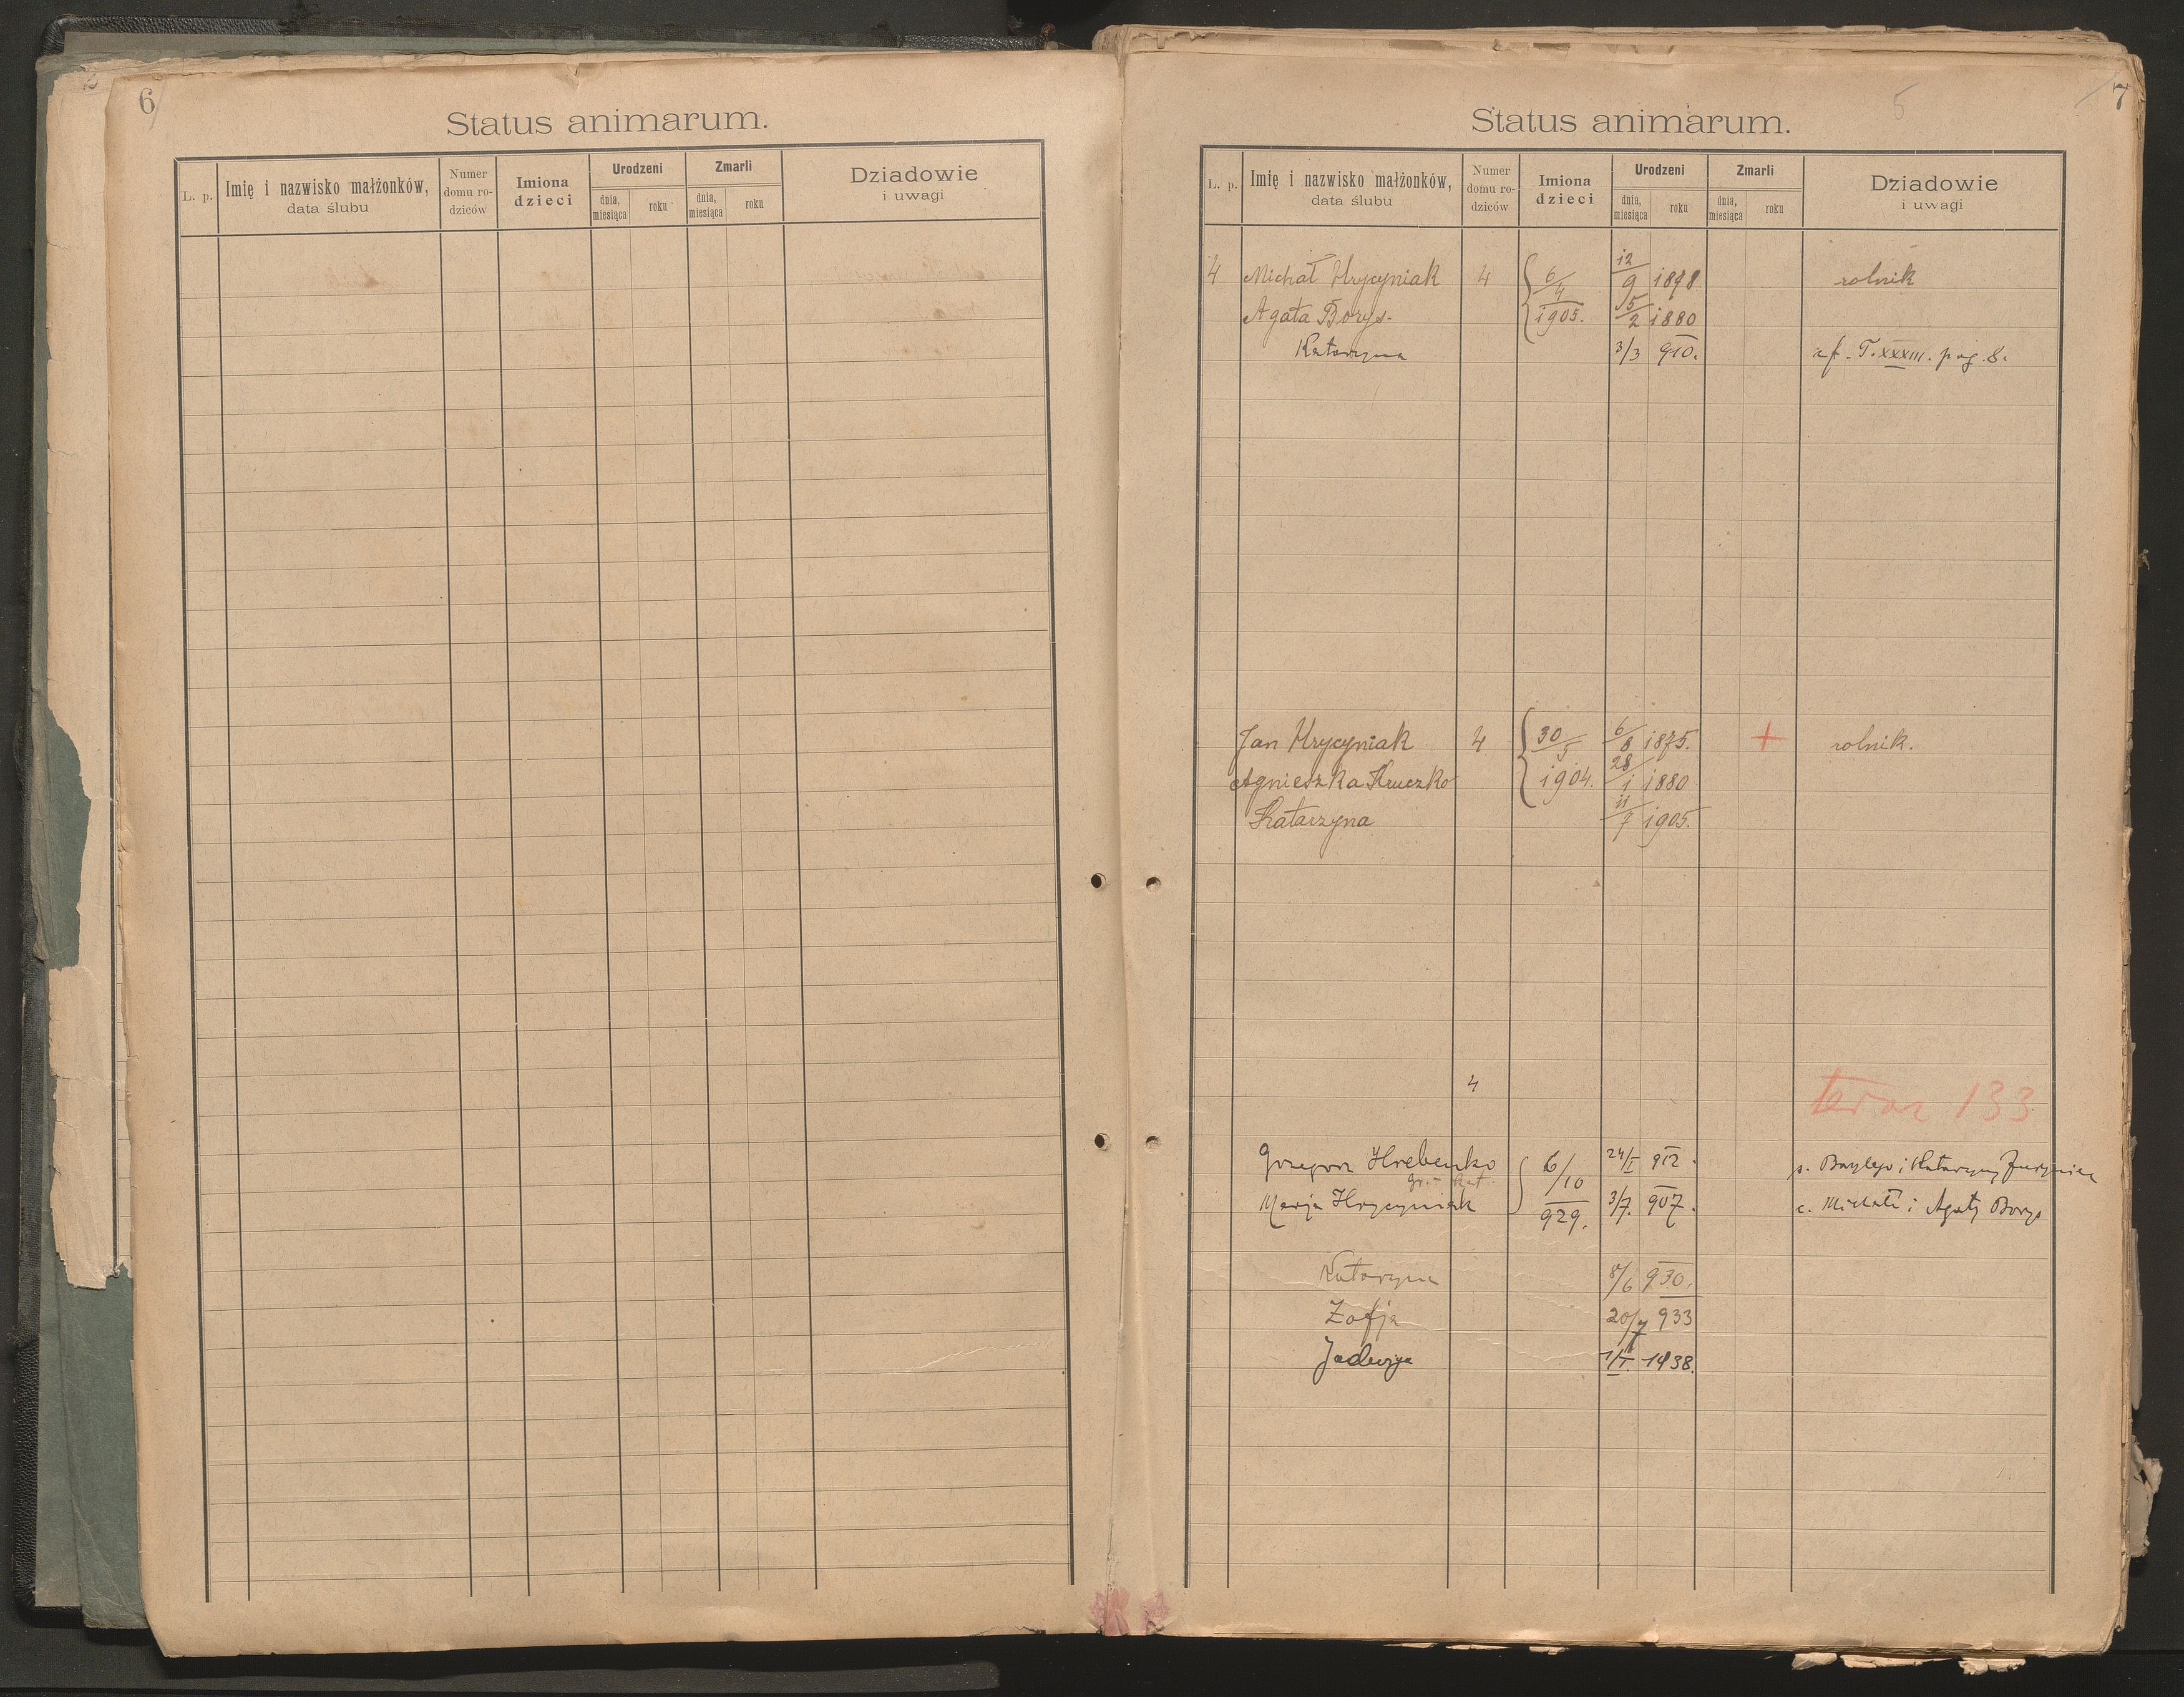 6
Status animarum.
L. p.
Imię i nazwisko małżonków,
data ślubu
Numer
domu ro-
dziców
Imiona
dzieci
Urodzeni
dnia,
miesiąca
roku
Zmarli
dnia,
miesiąca
roku
Dziadowie
i uwagi
5
7
Status animarum.
L. p.
Imię i nazwisko małżonków,
data ślubu
Numer
domu ro-
dziców
Imiona
dzieci
Urodzeni
dnia,
miesiąca
roku
Zmarli
dnia,
miesiąca
roku
Dziadowie
i uwagi
4 Michał Hrycyniak 4 6/4 12/9 rolnik
Agata Borys. 1905. 15/2 1880
Katarzyna 3/3 910. cf. T. XXXIII. pag. 8.
Jan Hrycyniak 4 30/5 6/8 1875. + rolnik.
Agnieszka Kruczko 1904. 28/1 1880
Katarzyna 11/7 1905.
4
teraz 133
Grzegorz Hrebenko 6/10 24/I 912. s. Bazylego i Katarzyny
gr.-kat.
Marja Hrycyniak 929. 3/7. 907. c. Michała i Agaty Borys
Katarzyna 8/6 930.
Zofja 20/7 933
Jadwiga 1/I. 1938.